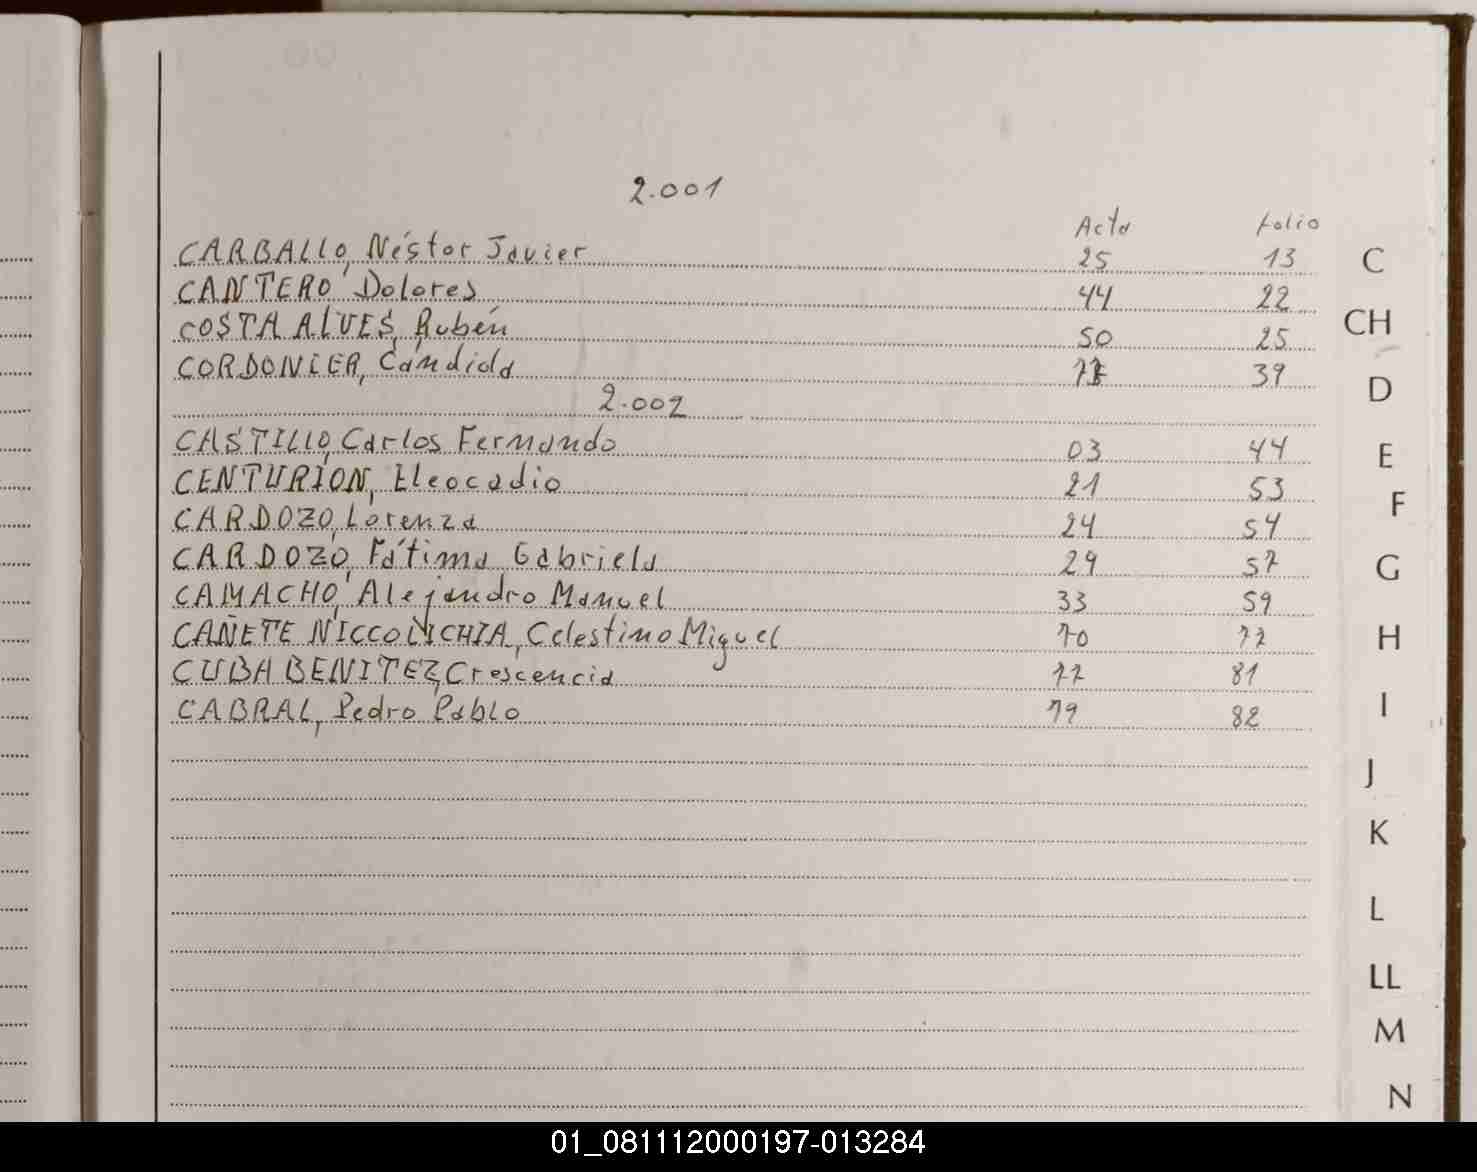 2.001
Acta folio
CARBALLO, Néstor Javier 25 13 C
CANTERO, Dolores 44 22
COSTA ALVES, Rubén 50 25 CH
CORDONIER, Cándida 39 D
2.002
CASTILLO, Carlos Fermando 03 44 E
CENTURIÓN, Eleocadio 21 53 F
CARDOZO, Lorenza 24 54
CARDOZO, Fátima Gabriela 29 57 G
CAMACHO, Alejandro Manuel 33 59
CAÑETE NICCOLICHIA, Celestino Miguel 70 77 H
CUBA BENITEZ, Crescencia 77 81
CABRAL, Pedro Pablo 79 82 I
J
K
L
LL
M
N
01_081112000197-013284